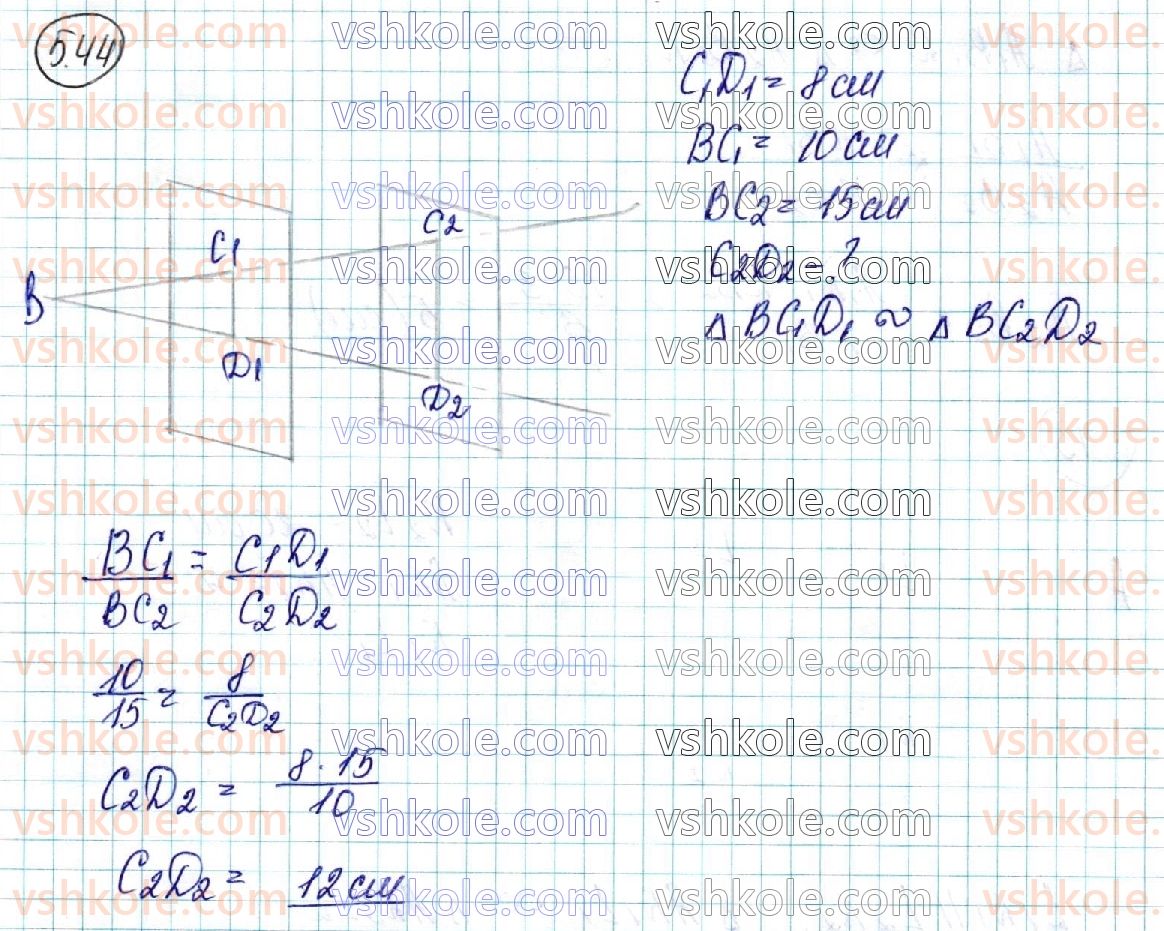 5.44
C1D1 = 8 см
BC1 = 10 см
BC2 = 15 см
C2D2 - ?
△ BC1D1 ∾ △ BC2D2
B
C1
D1
C2
D2
BC1/BC2 = C1D1/C2D2
10/15 = 8/C2D2
C2D2 = 8·15/10
C2D2 = 12 см
vshkole.com